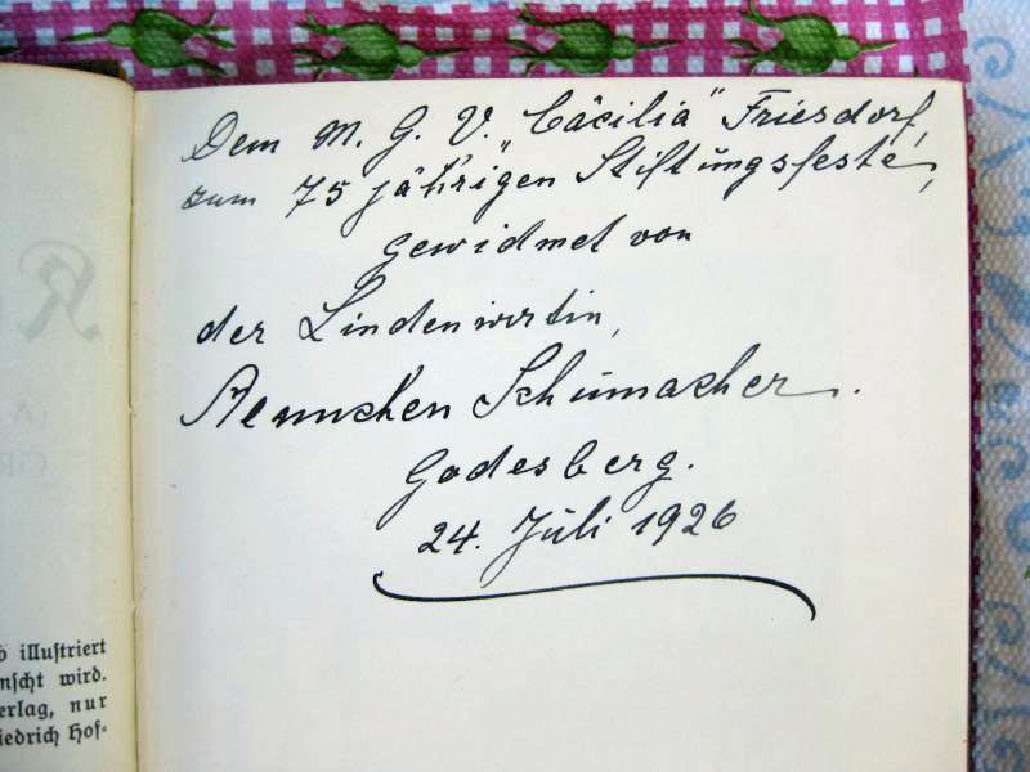 Dem M. G. V. „Cäcilia" Friesdorf,
zum 75 jährigen Stiftungsfeste,
gewidmet von
der Lindenwirtin,
Aennchen Schumacher.
Godesberg.
24. Juli 1926
illustriert
wird.
nur
Hof-